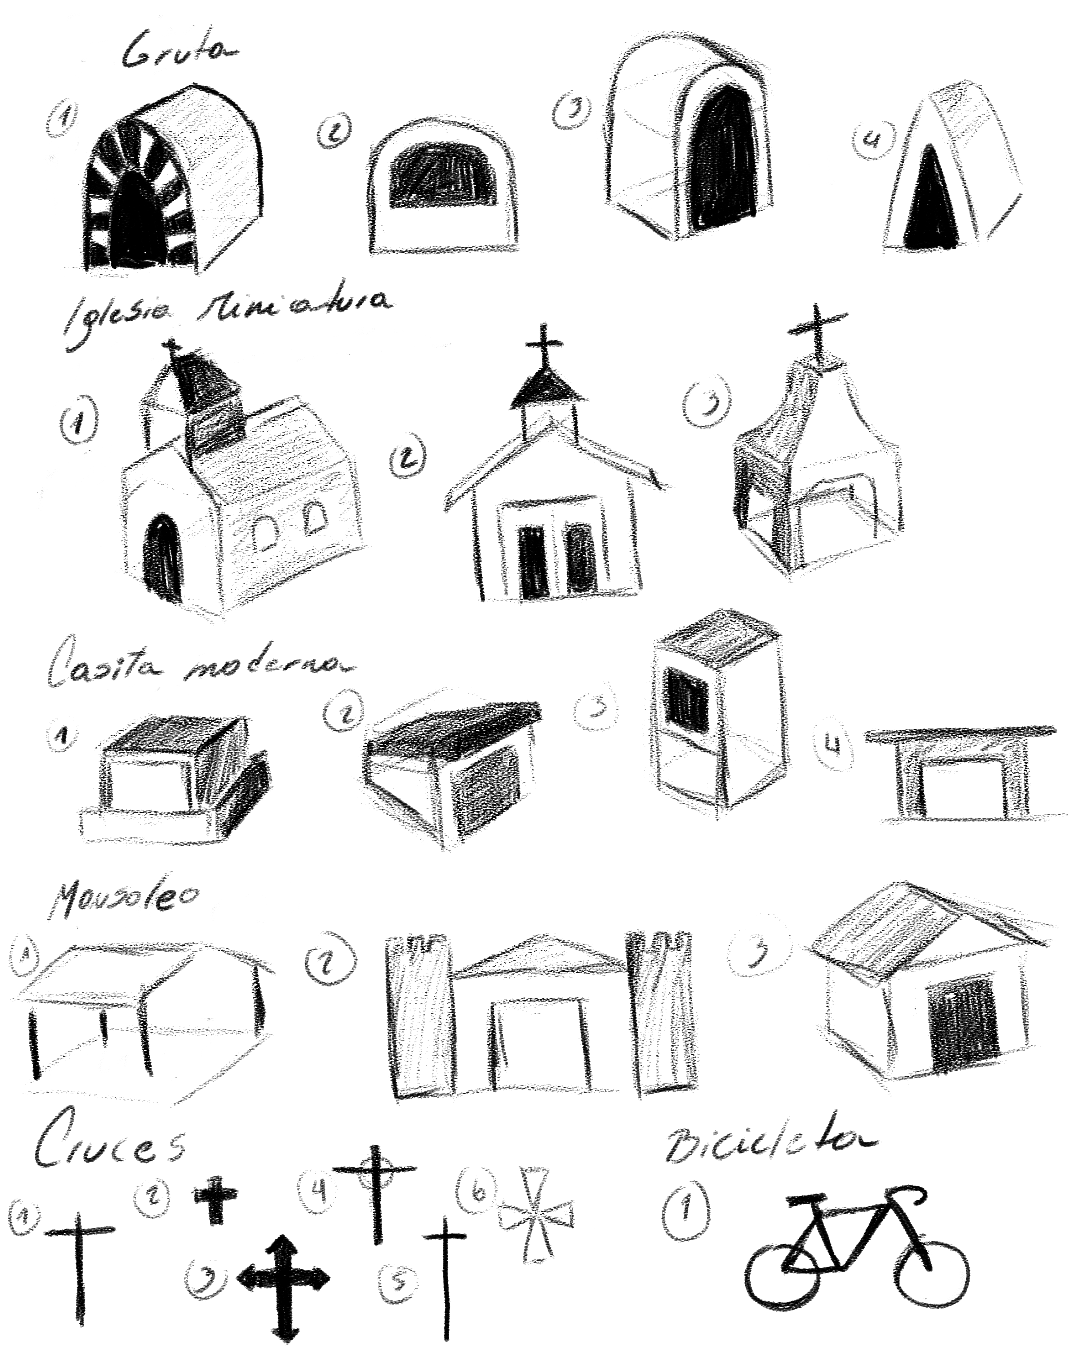 Gruta
1 2 3 4
Iglesia Miniatura
1 2 3
Casita moderna
1 2 3 4
Mausoleo
1 2 3
Cruces
1 2 3 4 5 6
Bicicleta
1